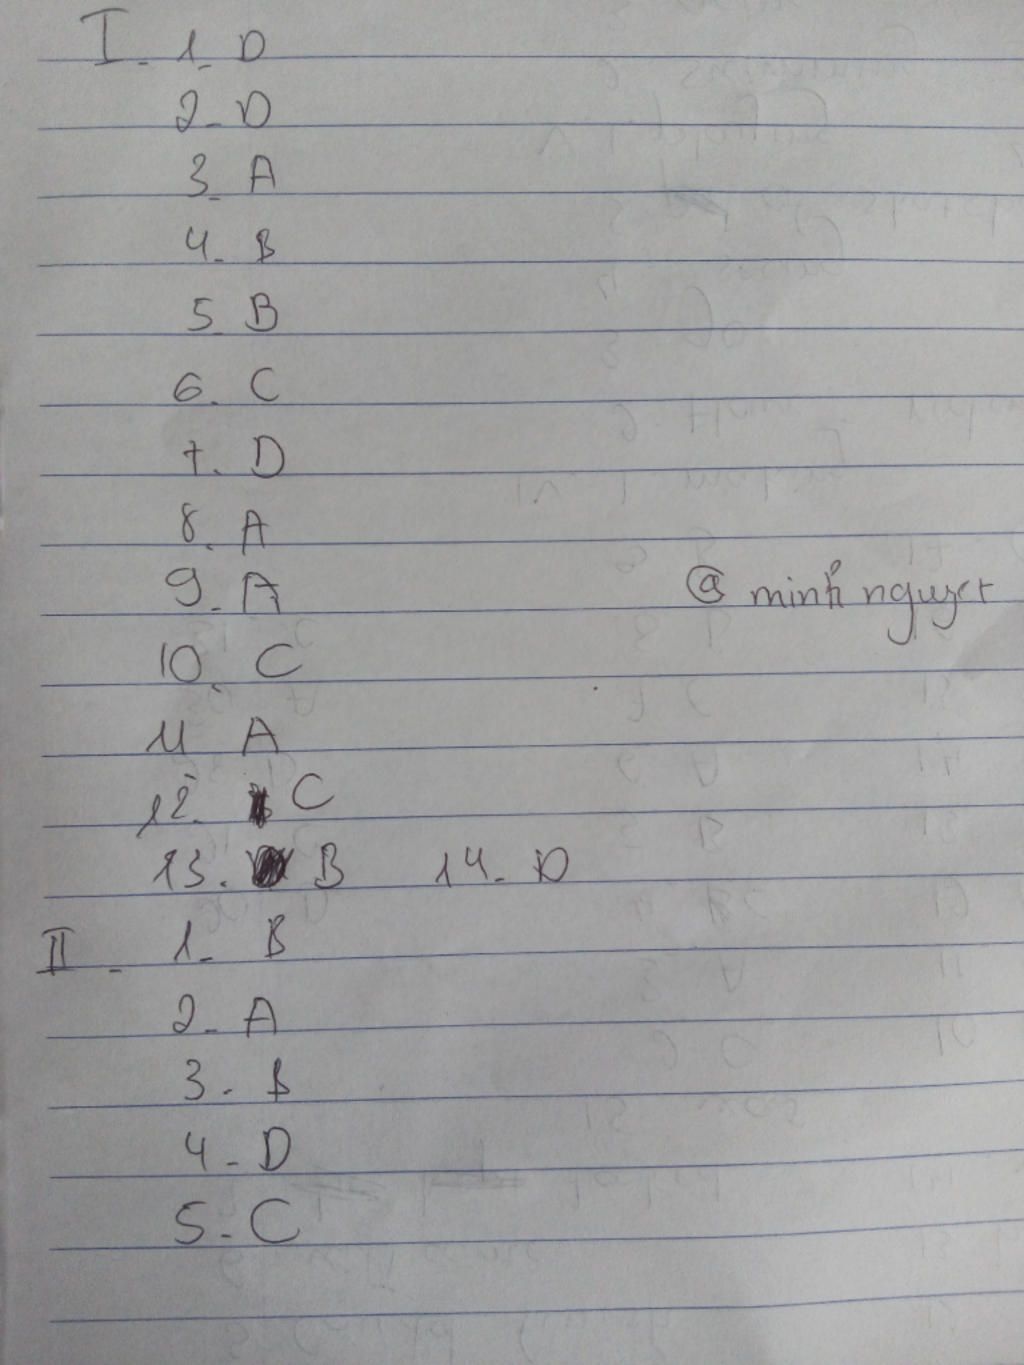 I. 1. D
2. D
3. A
4. B
5. B
6. C
7. D
8. A
9. A
@ minh nguyet
10. C
11 A
12. C
13. B 14. D
II. 1. B
2. A
3. B
4. D
5. C